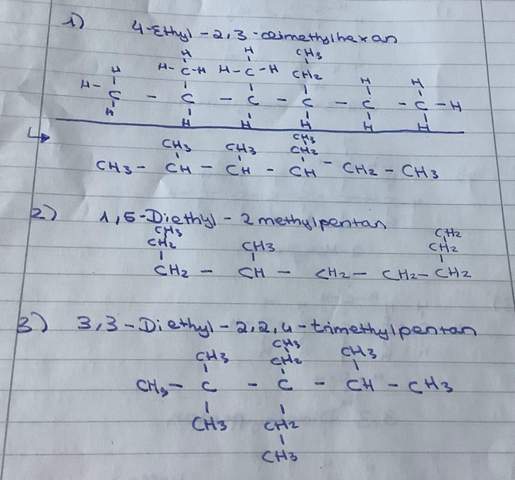 1) 4-Ethyl-2,3-dimethylhexan
H H CH3
H-C-H H-C-H CH2
H H H
H-C - C - C - C - C - C-H
H H H H H H
CH3 CH3 CH3 CH2
CH3 - CH - CH - CH - CH2 - CH3
2) 1,5-Diethyl-2methylpentan
CH3 CH2
CH2 CH3 CH2
CH2 - CH - CH2 - CH2 - CH2
3) 3,3-Diethyl-2,2,4-trimethylpentan
CH3
CH3 CH2 CH3
CH3 - C - C - CH - CH3
CH3 CH2
CH3